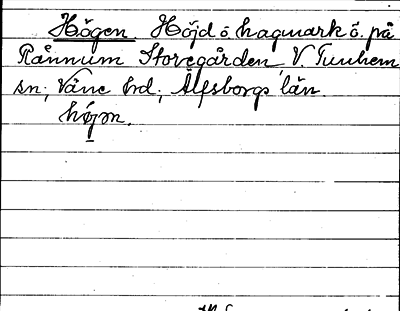 Högen. Höjd o hagmark ö. på
Rånnum Storegården, V. Tunhem
sn, Väne hd, Älfsborgs län.
högən.